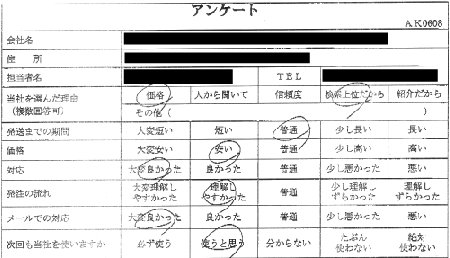 アンケート
A.K0608
会社名
住　所
担当者名　TEL
当社を選んだ理由　価格　人から聞いて　信頼度　検索上位だから　紹介だから
（複数回答可）　その他（　）
発送までの期間　大変短い　短い　普通　少し長い　長い
価格　大変安い　安い　普通　少し高い　高い
対応　大変良かった　良かった　普通　少し悪かった　悪い
発注の流れ　大変理解しやすかった　理解しやすかった　普通　少し理解しずらかった　理解しずらかった
メールでの対応　大変良かった　良かった　普通　少し悪かった　悪い
次回も当社を使いますか　必ず使う　使うと思う　分からない　たぶん使わない　絶対使わない